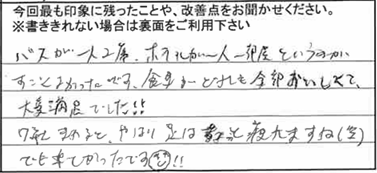 今回最も印象に残ったことや、改善点をお聞かせください。
※書ききれない場合は裏面をご利用下さい
バスが一人2席、ホテルが一人一部屋というのが
すごくよかったです。食事もとても全部おいしくて、
大変満足でした!!
すると、やはり足は疲れますね(笑)
でも楽しかったです!!